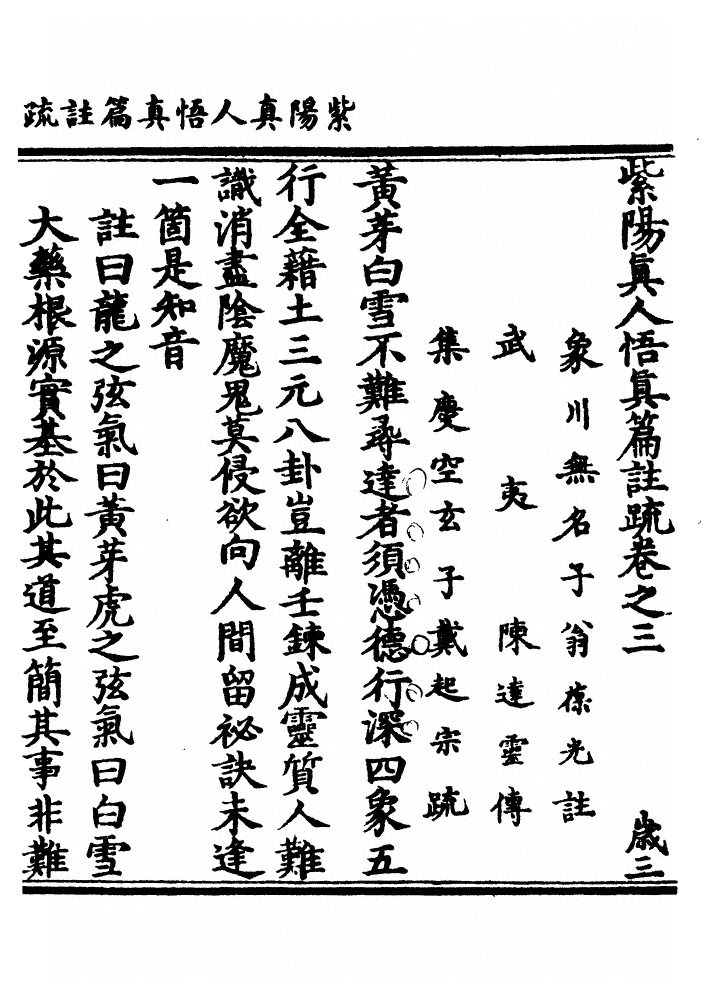 紫陽真人悟真篇註疏
紫陽眞人悟眞篇註䟽卷之三
歲三
象川無名子翁葆光註
武夷陳達靈傳
集慶空玄子戴起宗䟽
黃芽白雪不難尋達者須憑德行深四象五
行全藉土三元八卦豈離壬鍊成靈質人難
識消盡陰魔鬼莫侵欲向人間留祕訣未逢
一箇是知音
註曰龍之弦氣曰黃芽虎之弦氣曰白雪
大藥根源實基於此其道至簡其事非難